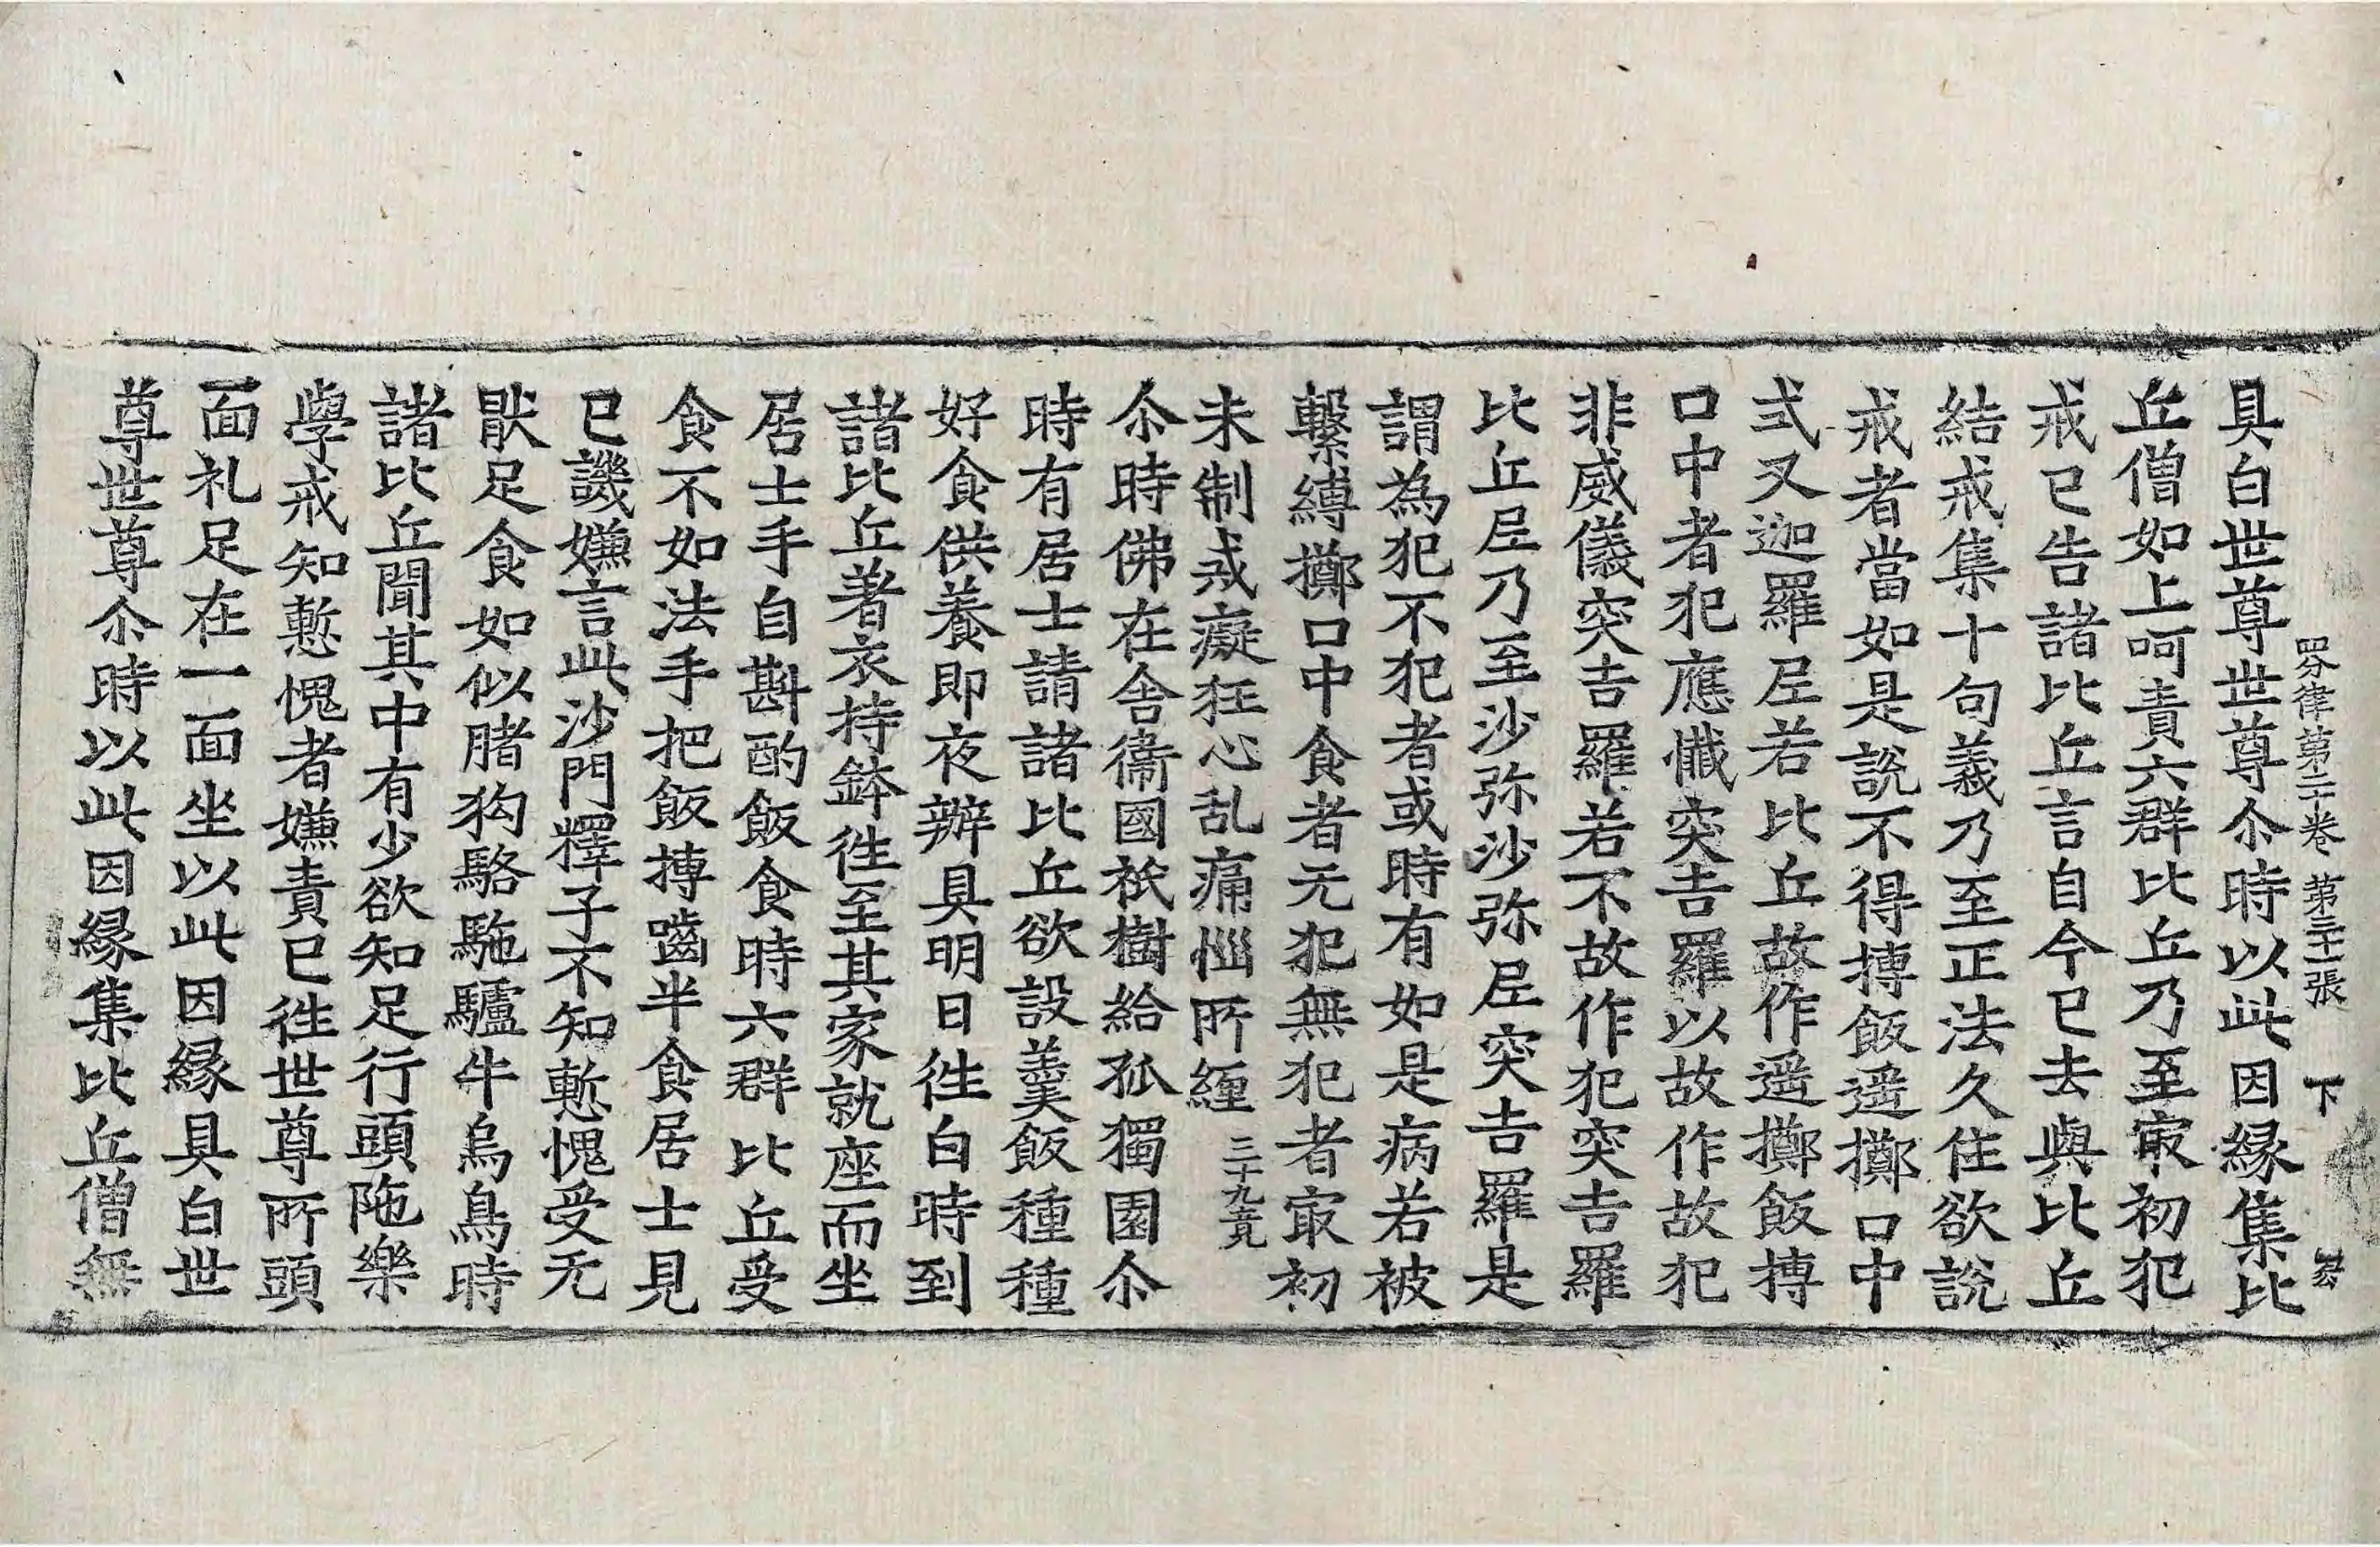 四分律第二十卷　第三十一張　下
具白世尊世尊尒時以此因縁集比
丘僧如上呵責六群比丘乃至㝡初犯
戒已告諸比丘言自今已去與比丘
結戒集十句義乃至正法久住欲說
戒者當如是說不得摶飯遥擲口中
式叉迦羅尼若比丘故作遥擲飯摶
口中者犯應懺突吉羅以故作故犯
非威儀突吉羅若不故作犯突吉羅
比丘尼乃至沙弥沙弥尼突吉羅是
謂為犯不犯者或時有如是病若被
繫縛擲口中食者无犯無犯者㝡初
未制戒癡狂心乱痛惱所纏 三十九竟
尒時佛在舎衛國祇樹給孤獨園尒
時有居士請諸比丘欲設羹飯種種
好食供養即夜辦具明日徃白時到
諸比丘著衣持鉢徃至其家就座而坐
居士手自斟酌飯食時六群比丘受
食不如法手把飯摶嚙半食居士見
已譏嫌言此沙門釋子不知慙愧受无
猒足食如似腤狗駱駞驢牛烏鳥時
諸比丘聞其中有少欲知足行頭陁樂
學戒知慙愧者嫌責已徃世尊所頭
面礼足在一面坐以此因縁具白世
尊世尊尒時以此因縁集比丘僧無